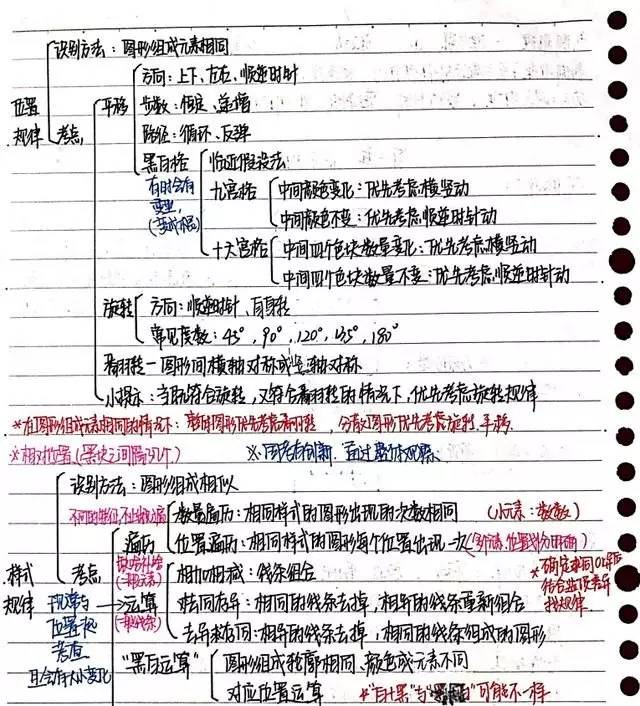 识别方法：图形组成元素相同
方向：上下、左右、顺逆时针
位置 平移 步数：恒定、递增
规律 考点 路径：循环、反弹
黑白格 临近假设法
有时会有 九宫格 中间颜色变化：优先考虑横竖动
中间颜色不变：优先考虑顺逆时针动
十六宫格 中间四个色块数量变化：优先考虑横竖动
中间四个色块数量不变：优先考虑顺逆时针动
旋转 方向：顺逆时针、自身转
常见度数：45°，90°，120°，135°，180°
翻转－图形间横轴对称或竖轴对称
小提示：当既符合旋转，又符合翻转的情况下，优先考虑旋转规律
*在图形组成元素相同的情况下：整的图形优先考虑翻转，分散图形优先考虑旋转、平移
*相对位置（黑块之间隔几个） ※图若有创新，通过整体观察
识别方法：图形组成相似
数量遍历：相同样式的图形出现的次数相同 （小元素：数数）
遍历 位置遍历：相同样式的图形每个位置出现一次
样式 考点 缺啥补啥 相加相减：线条组合 *确定求同or求异
规律 运算 去同存异：相同的线条去掉，相异的线条重新组合 找规律
去异存同：相异的线条去掉，相同的线条组成的图形
考查
且会有大小变化 “黑白运算” 图形组成轮廓相同、颜色或元素不同
对应位置运算 *“白+黑”与“黑+白”可能不一样